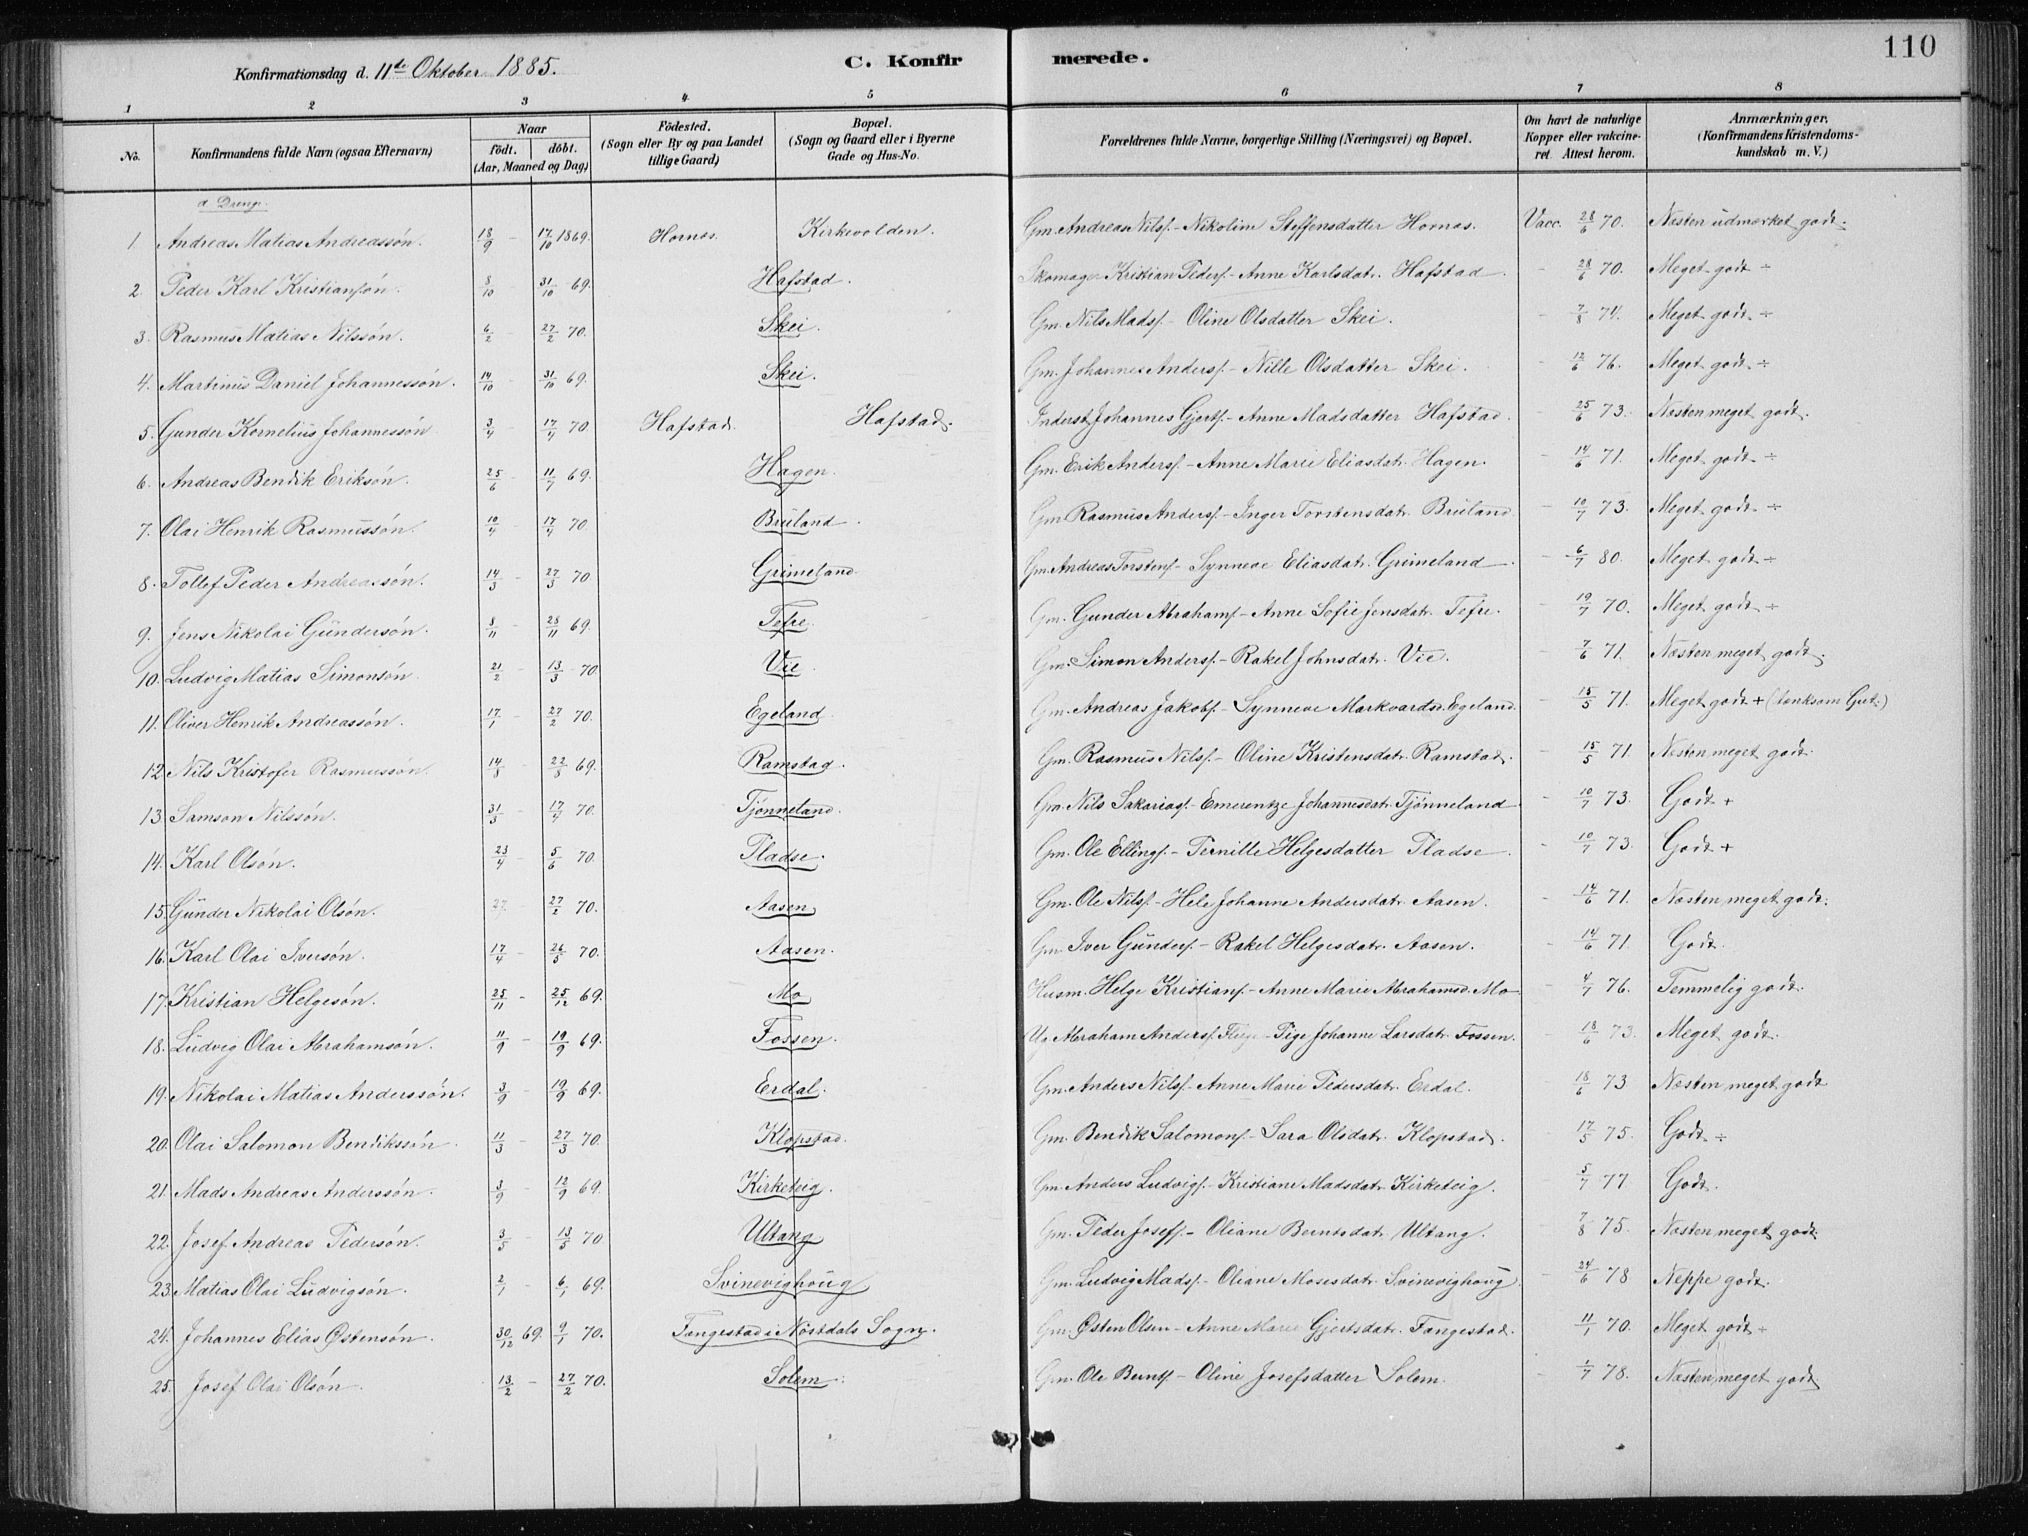 110
Konfirmationsdag d. 11te Oktober 1885.
C. Konfirmerede.
1 2 3 4 5 6 7 8
No.
Konfirmandens fulde Navn (ogsaa Efternavn)
Naar födt. döbt. (Aar, Maaned og Dag)
Födested. (Sogn eller By og paa Landet tillige Gaard)
Bopæl. (Sogn og Gaard eller i Byerne Gade og Hus-No.
Forældrenes fulde Navne, borgerlige Stilling (Næringsvei) og Bopæl.
Om havt de naturlige Kopper eller vakcineret. Attest herom.
Anmærkninger. (Konfirmandens Kristendomskundskab m. V.)
a Drenge.
1. Andreas Matias Andreassön. 18/9 - 17/10 1869. Hornes. Kirkevolden. Gm. Andreas Nilss. - Nikoline Steffensdatter Hornes. Vacc. 28/6 70. Næsten udmærket godt.
2. Peder Karl Kristiansön. 8/10 - 31/10 69. Hafstad. Skomager Kristian Peders. - Anne Karlsdatr. Hafstad - 28/6 70. Meget godt ÷
3. Rasmus Matias Nilssön. 6/2 - 27/2 70. Skei. Gm. Nils Mads. - Oline Olsdatter Skei. - 7/8 74. Meget godt ÷
4. Martinus Daniel Johannessön. 14/10 - 31/10 69. Skei. Gm. Johannes Anders. - Nille Olsdatter Skei. - 12/6 76. Meget godt ÷
5. Gunder Kornelius Johannessön 3/4 - 17/4 70 Hafstad. Hafstad. Inderst Johannes Gjerts. - Anne Madsdatter Hafstad. - 25/6 73. Næsten meget godt.
6. Andreas Bendik Eriksön. 25/6 - 11/7 69. Hagen. Gm. Erik Anders. - Anne Marie Eliasdatr. Hagen. - 14/6 71. Meget godt ÷
7. Olai Henrik Rasmussön. 10/4 - 17/4 70 Bruland. Gm. Rasmus Anders. - Inger Torstensdatr. Bruland. - 10/7 73. Meget godt ÷
8. Tollef Peder Andreassön. 14/3 - 27/3 70 Grimeland Gm. Andreas Torstens. - Synneve Eliasdatr. Grimeland - 6/7 80. Meget godt ÷
9. Jens Nikolai Gundersön. 8/11 - 28/11 69. Tefre. Gm. Gunder Abrahams. - Anne Sofie Jensdatr. Tefre. - 19/7 70. Meget godt ÷
10. Ludvig Matias Simonsön. 21/2 - 13/3 70. Vie. Gm. Simon Anders. - Rakel Johnsdatr. Vie. - 7/6 71. Næsten meget godt.
11. Oliver Henrik Andreassön. 17/1 - 27/2 70. Egeland. Gm. Andreas Jakobs. - Synneve Markvardsd. Egeland. - 15/5 71. Meget godt + (tenksom Gut.)
12. Nils Kristofer Rasmussön. 14/8 - 22/8 69. Ramstad. Gm. Rasmus Nils. - Oline Kristensdatr. Ramstad. - 15/5 71. Næsten meget godt.
13. Samson Nilssön. 31/3 - 17/4 70. Tjönneland. Gm. Nils Sakarias. - Emerentze Johannesdatr. Tjönneland - 10/7 73. Godt +
14. Karl Olsön. 23/4 - 5/6 70. Pladse. Gm. Ole Ellings. - Pernille Helgesdatter Pladse. - 10/7 73. Godt +
15. Gunder Nikolai Olsön. 27/2 70. Aasen. Gm. Ole Nils. - Hele Johanne Andersdatr. Aasen. - 14/6 71. Næsten meget godt.
16. Karl Olai Iversön. 17/4 - 26/5 70. Aasen. Gm. Iver Gunders. - Rakel Helgesdatr. Aasen. - 14/6 71. Godt.
17. Kristian Helgesön. 25/11 - 25/12 69. Mo Husm. Helge Kristians. - Anne Marie Abrahamsd. Mo - 4/7 76. Temmelig godt.
18. Ludvig Olai Abrahamsön. 11/9 - 19/9 69. Fossen. Abraham Anders. - Pige Johanne Larsdatr. Fossen. - 18/6 73. Meget godt.
19. Nikolai Matias Anderssön. 3/9 - 19/9 69. Erdal. Gm. Anders Nils. - Anne Marie Pedersdatr. Erdal. - 18/6 73 Næsten meget godt
20. Olai Salomon Bendikssön. 11/3 - 27/3 70. Klopstad. Gm. Bendik Salomons. - Sara Olsdatr. Klopstad. - 17/5 75. Godt ÷
21. Mads Andreas Anderssön. 3/9 - 12/9 69. Kirketeig. Gm. Anders Ludvigs. - Kristiane Madsdatr. Kirketeig. - 5/7 77. Godt.
22. Josef Andreas Pedersön. 3/5 - 13/5 70 Ultang Gm. Peder Josefs. - Oliane Berntsdatr. Ultang. - 7/8 75. Næsten meget godt.
23. Matias Olai Ludvigsön. 2/1 - 6/1 69. Svinevighoug Gm. Ludvig Mads. - Oliane Mosesdatr. Svinevighoug. - 24/6 78 Neppe godt.
24. Johannes Elias Østensön. 30/12 69. 9/1 70. Fangestad i Nöstdals Sogn. Gm. Østen Olsen - Anne Marie Gjertsdatr. Fangestad. - 11/1 70. Meget godt ÷
25. Josef Olai Olsön. 13/2 - 27/2 70. Solem. Gm. Ole Bernts. - Oline Josefsdatter Solem. - 1/7 78. Næsten meget godt.